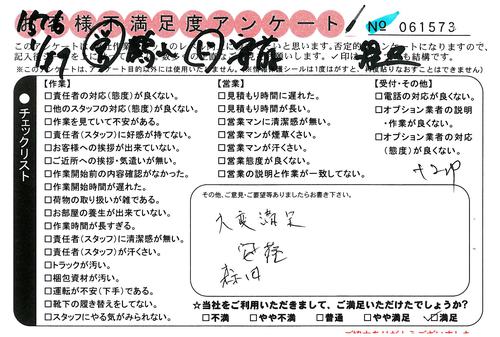 お客様不満足度アンケート
No 061573
✓印は
も結構です。
(※個人情報保護シールは1度はがすと、再度貼りなおすことはできません)
チェックリスト
【作業】
□責任者の対応(態度)が良くない。
□他のスタッフの対応(態度)が良くない。
□作業を見ていて不安がある。
□責任者(スタッフ)に好感が持てない。
□お客様への挨拶が出来ていない。
□ご近所への挨拶・気遣いが無い。
□作業開始前の内容確認がなかった。
□作業開始時間が遅れた。
□荷物の取り扱いが雑である。
□お部屋の養生が出来ていない。
□作業時間が長すぎる。
□責任者(スタッフ)に清潔感が無い。
□責任者(スタッフ)が汗くさい。
□トラックが汚い。
□梱包資材が汚い。
□運転が不安(下手)である。
□靴下の履き替えをしてない。
□スタッフにやる気がみられない。
【営業】
□見積もり時間に遅れた。
□見積もり時間が長い。
□営業マンに清潔感が無い。
□営業マンが煙草くさい。
□営業マンが汗くさい。
□営業態度が良くない。
□営業の説明と作業が一致してない。
【受付・その他】
□電話の対応が良くない。
□オプション業者の説明
・作業が良くない。
□オプション業者の対応
(態度)が良くない。
その他、ご意見・ご要望等ありましたらお書き下さい。
大変満足
森田
☆当社をご利用いただきまして、ご満足いただけたでしょうか?
□不満 □やや不満 □普通 □やや満足 ☑満足